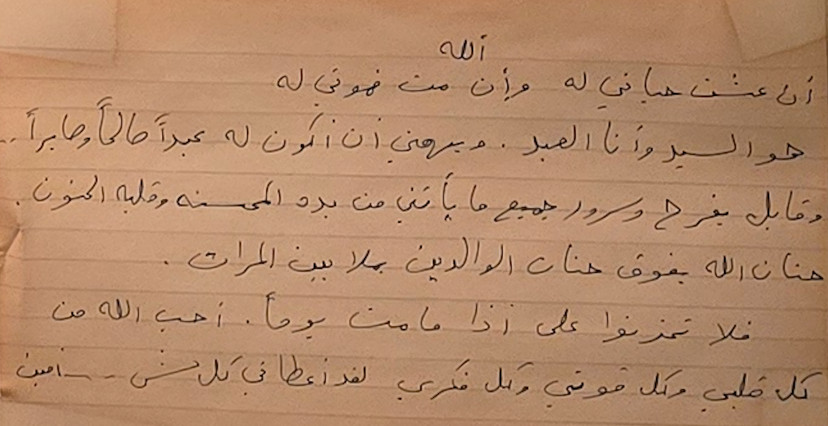 الله
أن عشت حياتي له وأن مت فموتي له
هو السيد وأنا العبد . ويهمني أن أكون له عبداً صالحاً وصابراً ..
وقابل بفرح وسرور جميع ما يأتني من يده المحسنه وقلبه الحنون .
حنان الله يفوق حنان الوالدين بملايين المرات .
فلا تحزنوا على إذا مامت يوماً . أحب الله من
كل قلبي وكل قوتي وكل فكري لقد أعطاني كل شئ -- آمين